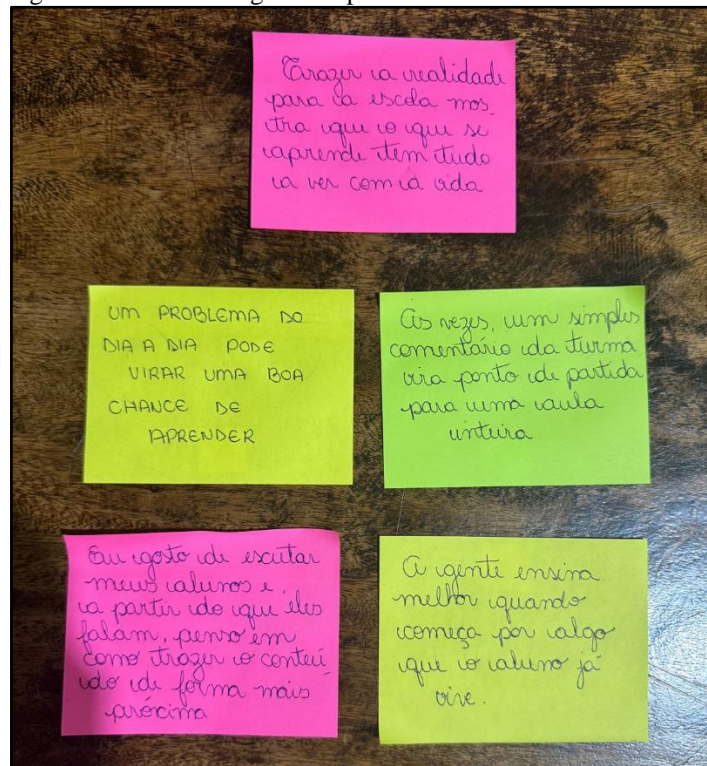 Trazer a realidade
para a escola mos
tra que o que se
aprende tem tudo
a ver com a vida
UM PROBLEMA DO
DIA A DIA PODE
VIRAR UMA BOA
CHANCE DE
APRENDER
Às vezes, um simples
comentário da turma
vira ponto de partida
para uma aula
inteira
Eu gosto de escutar
meus alunos e,
a partir do que eles
falam, penso em
como trazer o conteú
do de forma mais
próxima
A gente ensina
melhor quando
começa por algo
que o aluno já
vive.